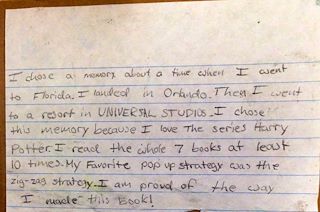 I chose a memory about a time when I went
to Florida. I landed in Orlando. Then I went
to a resort in UNIVERSAL STUDIOS. I chose
this memory because I love The series Harry
Potter. I read the whole 7 books at least
10 times. My Favorite pop up strategy was the
zig-zag strategy. I am proud of the way
I made this book!